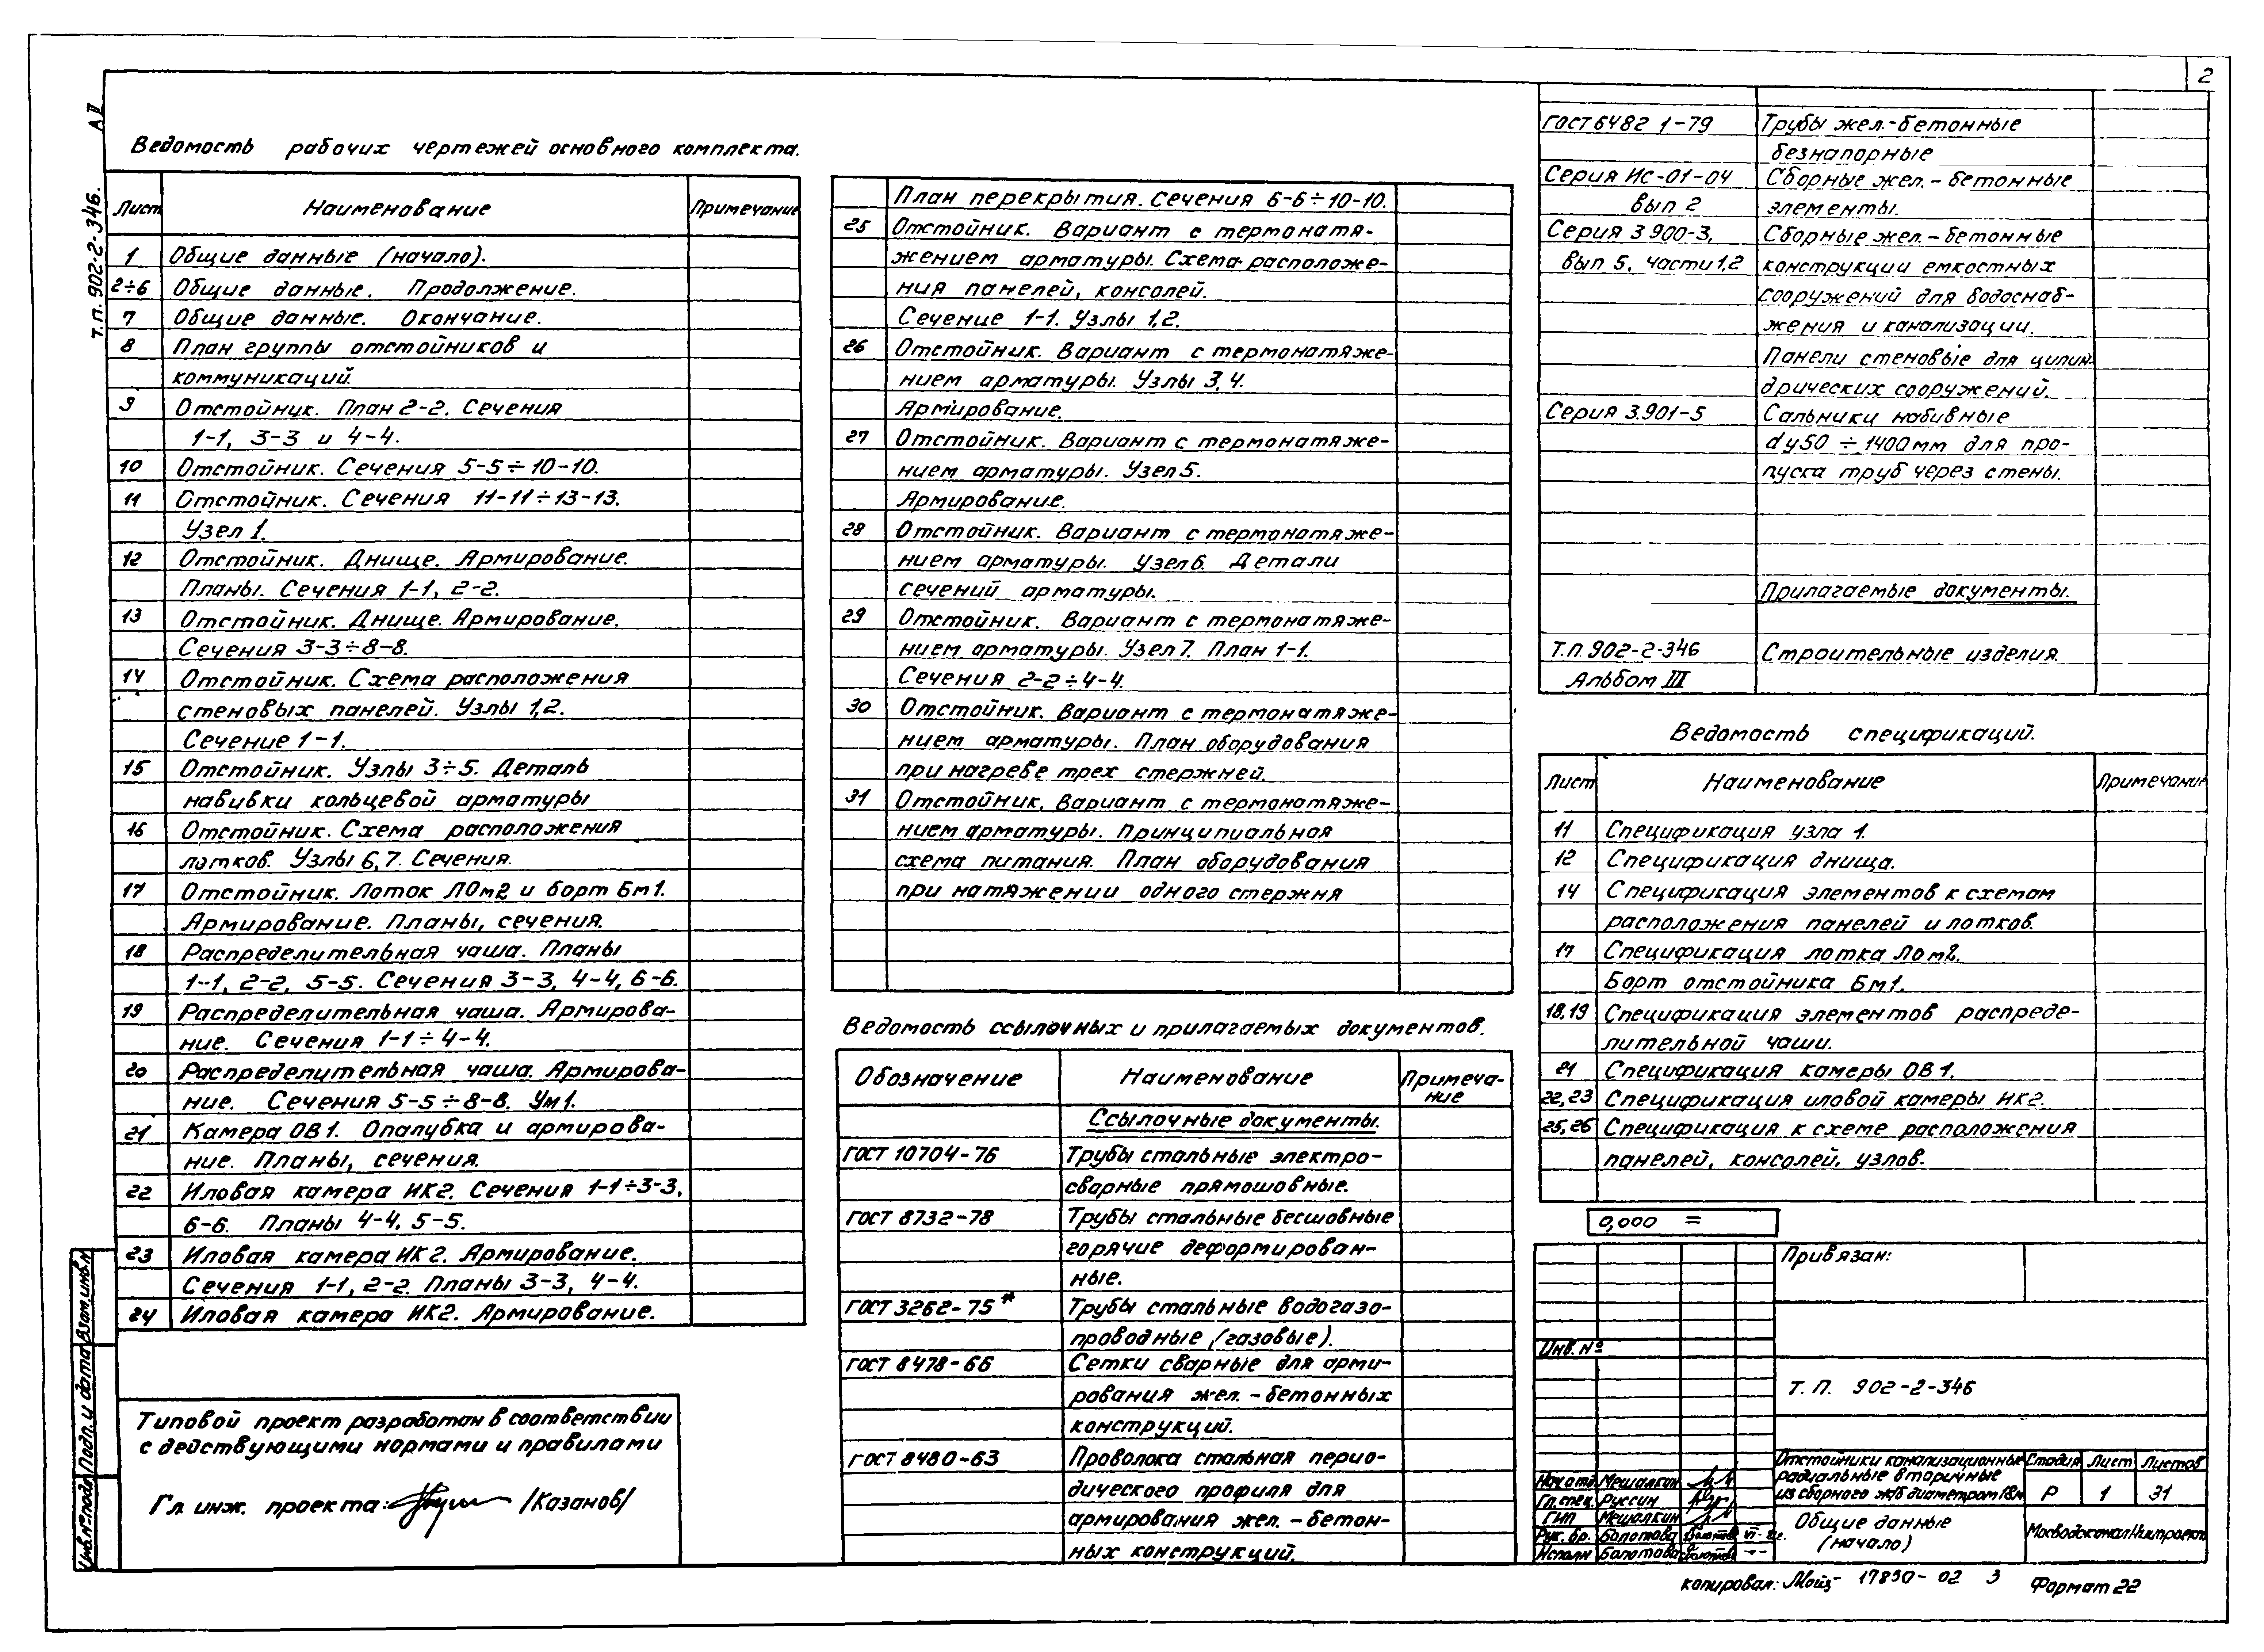 2
А II
т.п. 902-2-346.
Ведомость рабочих чертежей основного комплекта.
Лист Наименование Примечание
1 Общие данные (начало).
2÷6 Общие данные. Продолжение.
7 Общие данные. Окончание.
8 План группы отстойников и
коммуникаций.
9 Отстойник. План 2-2. Сечения
1-1, 3-3 и 4-4.
10 Отстойник. Сечения 5-5÷10-10.
11 Отстойник. Сечения 11-11÷13-13.
Узел 1.
12 Отстойник. Днище. Армирование.
Планы. Сечения 1-1, 2-2.
13 Отстойник. Днище. Армирование.
Сечения 3-3÷8-8.
14 Отстойник. Схема расположения
стеновых панелей. Узлы 1,2.
Сечение 1-1.
15 Отстойник. Узлы 3÷5. Деталь
навивки кольцевой арматуры
16 Отстойник. Схема расположения
лотков. Узлы 6,7. Сечения.
17 Отстойник. Лоток ЛОм2 и борт Бм1.
Армирование. Планы, сечения.
18 Распределительная чаша. Планы
1-1, 2-2, 5-5. Сечения 3-3, 4-4, 6-6.
19 Распределительная чаша. Армирова-
ние. Сечения 1-1÷4-4.
20 Распределительная чаша. Армирова-
ние. Сечения 5-5÷8-8. Ум1.
21 Камера ОВ1. Опалубка и армирова-
ние. Планы, сечения.
22 Иловая камера ИК2. Сечения 1-1÷3-3,
6-6. Планы 4-4, 5-5.
23 Иловая камера ИК2. Армирование.
Сечения 1-1, 2-2. Планы 3-3, 4-4.
24 Иловая камера ИК2. Армирование.
План перекрытия. Сечения 6-6÷10-10.
25 Отстойник. Вариант с термонатя-
жением арматуры. Схема расположе-
ния панелей, консолей.
Сечение 1-1. Узлы 1,2.
26 Отстойник. Вариант с термонатяже-
нием арматуры. Узлы 3,4.
Армирование.
27 Отстойник. Вариант с термонатяже-
нием арматуры. Узел 5.
Армирование.
28 Отстойник. Вариант с термонатяже-
нием арматуры. Узел 6. Детали
сечений арматуры.
29 Отстойник. Вариант с термонатяже-
нием арматуры. Узел 7. План 1-1.
Сечения 2-2÷4-4.
30 Отстойник. Вариант с термонатяже-
нием арматуры. План оборудования
при нагреве трех стержней.
31 Отстойник. Вариант с термонатяже-
нием арматуры. Принципиальная
схема питания. План оборудования
при натяжении одного стержня
Ведомость ссылочных и прилагаемых документов.
Обозначение Наименование Примеча-
ние
Ссылочные документы.
ГОСТ 10704-76 Трубы стальные электро-
сварные прямошовные.
ГОСТ 8732-78 Трубы стальные бесшовные
горячие деформирован-
ные.
ГОСТ 3262-75* Трубы стальные водогазо-
проводные (газовые).
ГОСТ 8478-66 Сетки сварные для арми-
рования жел.-бетонных
конструкций.
ГОСТ 8480-63 Проволока стальная перио-
дического профиля для
армирования жел.-бетон-
ных конструкций.
ГОСТ 6482 1-79 Трубы жел.-бетонные
безнапорные
Серия ИС-01-04 Сборные жел.-бетонные
вып 2 элементы.
Серия 3 900-3, Сборные жел.-бетонные
вып 5, части 1,2 конструкции емкостных
сооружений для водоснаб-
жения и канализации.
Панели стеновые для цилин-
дрических сооружений.
Серия 3.901-5 Сальники набивные
dу50 ÷ 1400мм для про-
пуска труб через стены.
Прилагаемые документы.
Т.П. 902-2-346 Строительные изделия.
Альбом III
Ведомость спецификаций.
Лист Наименование Примечание
11 Спецификация узла 1.
12 Спецификация днища.
14 Спецификация элементов к схемам
расположения панелей и лотков.
17 Спецификация лотка ЛОм2.
Борт отстойника Бм1.
18,19 Спецификация элементов распреде-
лительной чаши.
21 Спецификация камеры ОВ1.
22,23 Спецификация иловой камеры ИК2.
25,26 Спецификация к схеме расположения
панелей, консолей, узлов.
0,000 =
Привязан:
Инв. №
Т. П. 902-2-346
Нач.отд. Мешалкин
Гл.спец. Руссин
ГИП Мешалкин
Рук. бр. Болотова
Исполн Болотова
Отстойники канализационные
радиальные вторичные
из сборного ж/б диаметром 18м
Стадия Лист Листов
Р 1 31
Общие данные
(начало)
МосводоканалНИИпроект
Типовой проект разработан в соответствии
с действующими нормами и правилами
Гл. инж. проекта: /Казанов/
Взам.инв.№
Подп. и дата
Инв.№подл.
копировал: 17850-02 3 Формат 22